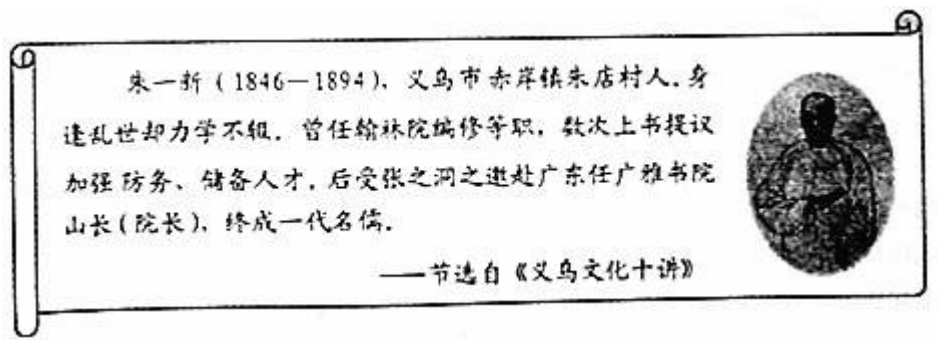 朱一新(1846—1894)、义乌市赤岸镇朱店村人。身
逢乱世却力学不辍。曾任翰林院编修等职,数次上书提议
加强防务、储备人才。后受张之洞之邀赴广东任广雅书院
山长(院长)、终成一代名儒。
——节选自《义乌文化十讲》